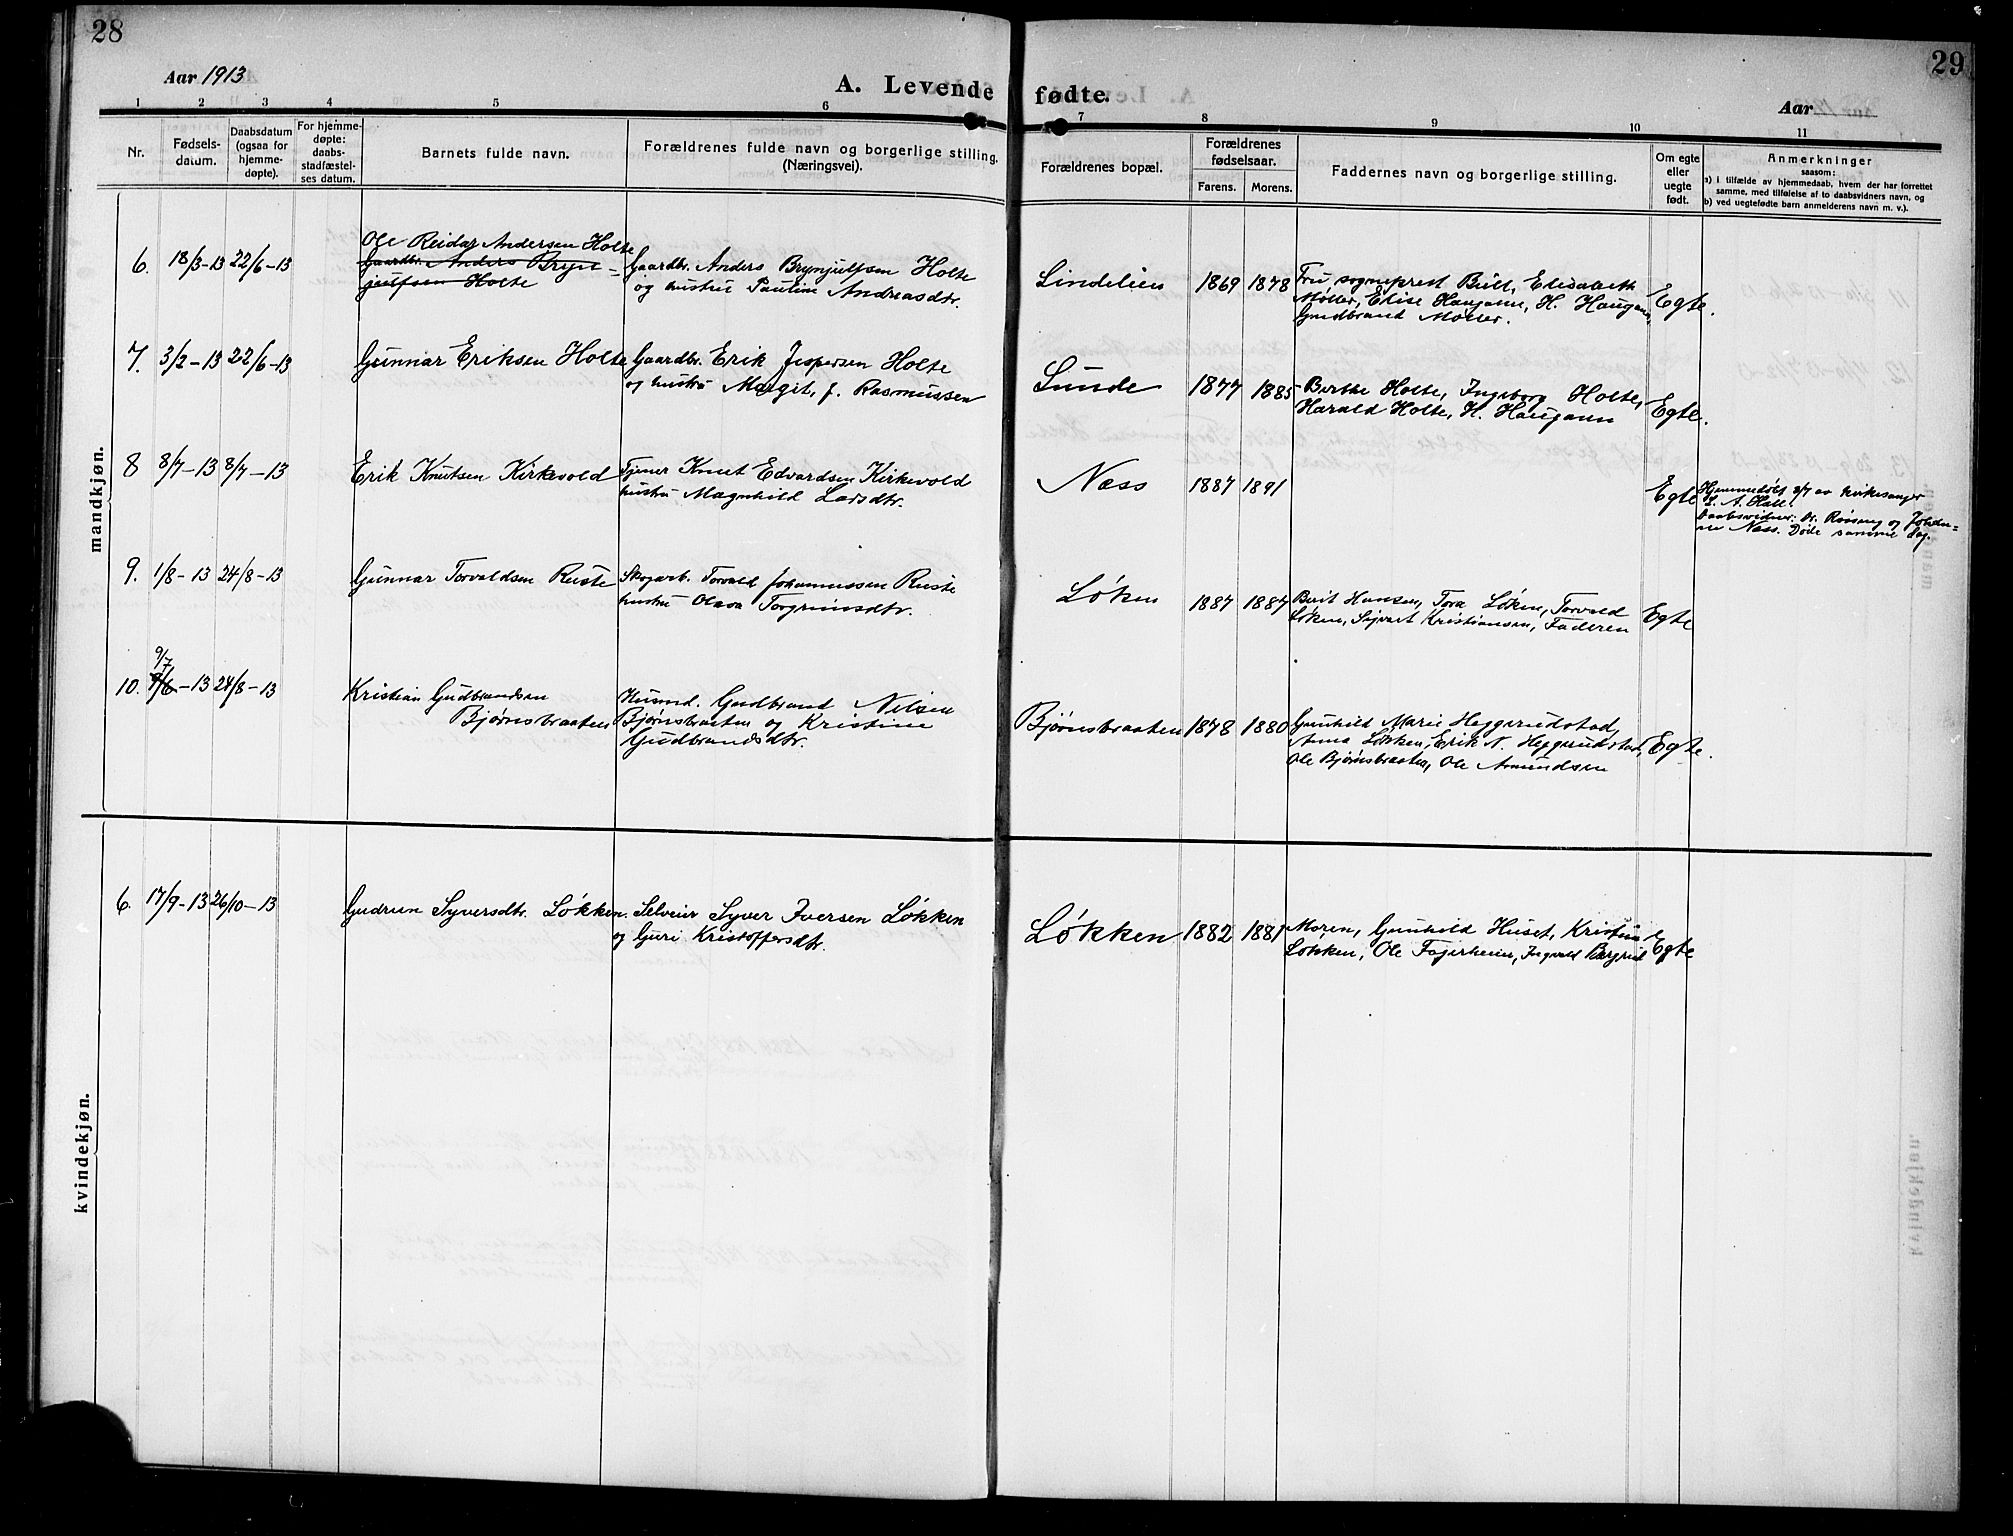 28
29
Aar 1913
A. Levende fødte.
Aar
1 2 3 4 5 6 7 8 9 10 11
Nr.
Fødsels-
datum.
Daabsdatum
(ogsaa for
hjemme-
døpte).
For hjemme-
døpte:
daabs-
stadfæstel-
ses datum.
Barnets fulde navn.
Forældrenes fulde navn og borgerlige stilling.
(Næringsvei).
Forældrenes bopæl.
Forældrenes
fødselsaar.
Farens. Morens.
Faddernes navn og borgerlige stilling.
Om egte
eller
uegte
født.
Anmerkninger
saasom:
a) i tilfælde av hjemmedaab, hvem der har forrettet
samme, med tilføielse af to daabsvidners navn, og
b) ved uegtefødte barn anmelderens navn m. v.).
mandkjøn.
6. 18/3-13 22/6-13
Ole Reidar Andersen Holte
Gaardbr. Anders Bryn-
julfsen Holte
Gaardbr. Anders Brynjulfsen Holte
og hustru Pauline Andreasdtr.
Lindelien 1869 1878
Fru sogneprest Bull, Elisabeth
Møller, Elise Haugann, H. Haugann,
Gudbrand Møller.
Egte.
7. 3/2-13 22/6-13
Gunnar Eriksen Holte
Gaardbr. Erik Jespersen Holte
og hustru Margit, f. Rasmussen
Lunde 1877 1885
Berthe Holte, Ingeborg Holte,
Harald Holte, H. Haugann
Egte.
8 8/7-13 8/7-13
Erik Knutsen Kirkevold
Tjener Knut Edvardsen Kirkevold
hustru Magnhild Larsdtr.
Næss 1887 1891
Egte
Hjemmedøbt 8/7 av kirkesanger
L. A. Hall.
Daabsvidner: Dr. og
Næss. Døde samme dag.
9. 1/8-13 24/8-13
Gunnar Torvaldsen Ruste
Skogarb. Torvald Johannessen Ruste
hustru Olava Torgrimsdtr.
Løken 1887 1887
Berit Hansen, Tora Løken, Torvald
Løken, Sigvart Kristiansen, Faderen
Egte
9/7
10. 9/6-13 24/8-13
Kristian Gudbrandsen
Bjørnsbraaten
Husmd. Gudbrand Nilsen
Bjørnsbraaten og Kristine
Gudbrandsdtr.
Bjørnsbraaten 1878 1880
Gunhild Marie Heggerudstad,
Anna Løkken, Erik N. Heggerudstad,
Ole Bjørnsbraaten, Ole Amundsen
Egte.
kvindekjøn.
6. 17/9-13 26/10-13
Gudrun Syversdtr. Løkken.
Selveier Syver Iversen Løkken
og Guri Kristoffersdtr.
Løkken 1882 1881
Moren, Gunhild Huset, Kristine
Løkken, Ole Fagerheim, Ingvald Bergrud
Egte